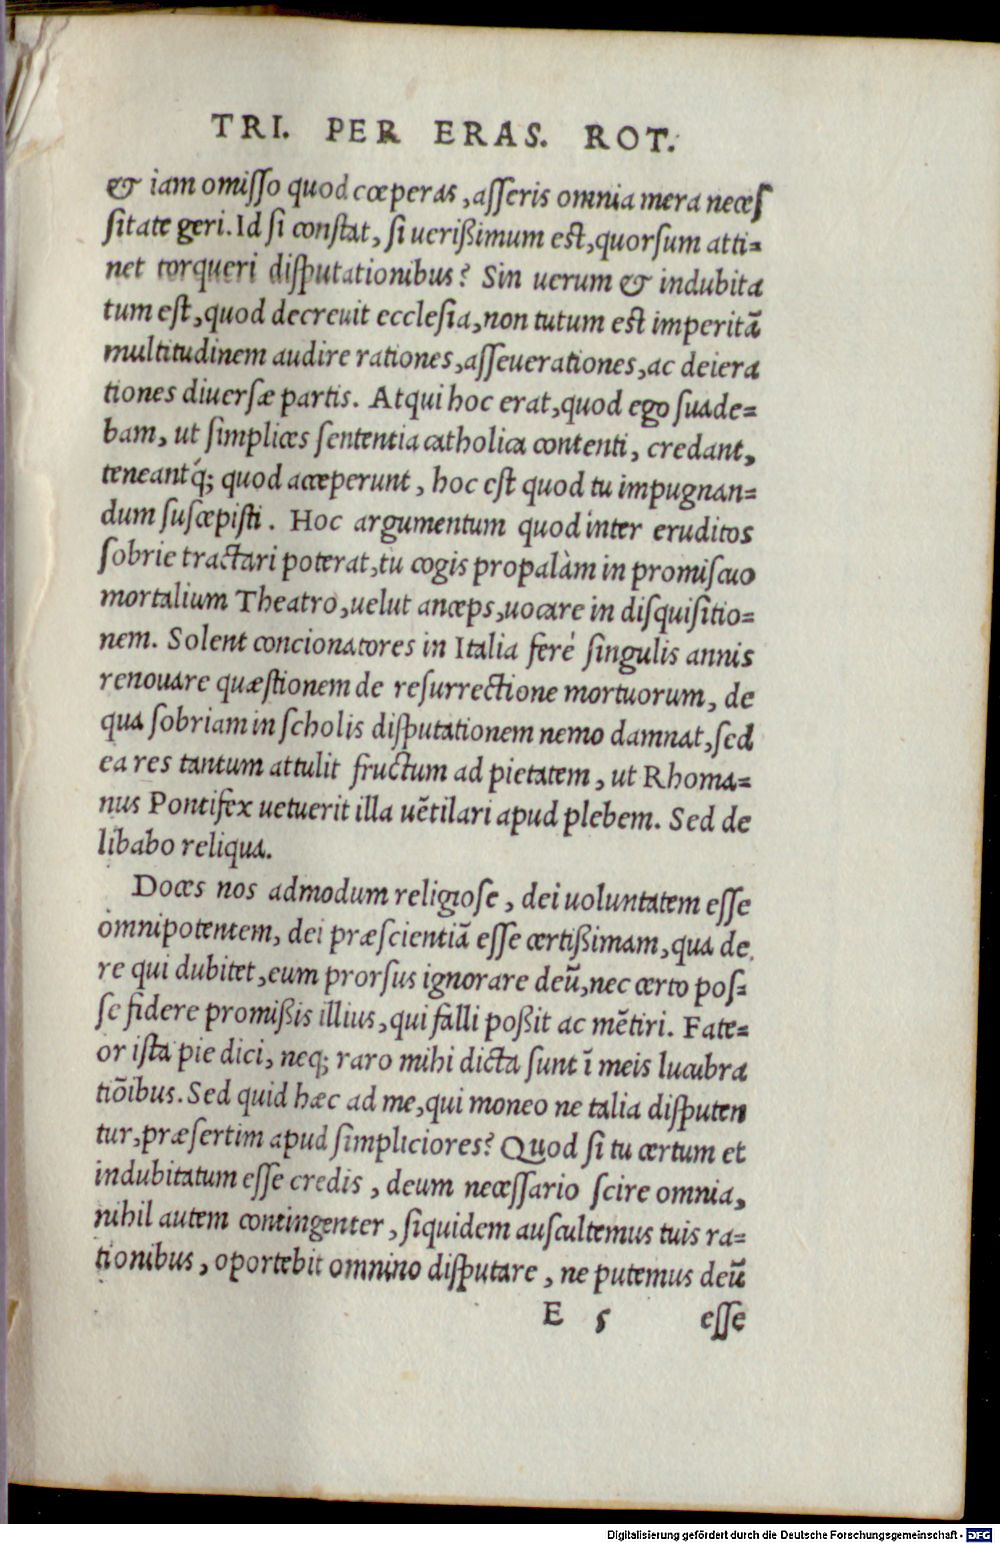 TRI. PER ERAS. ROT.
& iam omisso quod cœperas, asseris omnia mera neceſ
ſitate geri. Id ſi conſtat, ſi ueriſsimum eſt, quorſum atti=
net torqueri diſputationibus? Sin uerum & indubita
tum eſt, quod decreuit eccleſia, non tutum eſt imperitã
multitudinem audire rationes, aſſeuerationes, ac deiera
tiones diuerſæ partis. Atqui hoc erat, quod ego ſuade=
bam, ut ſimplices ſententia catholica contenti, credant,
teneantq́; quod acceperunt, hoc eſt quod tu impugnan=
dum ſuſcepiſti. Hoc argumentum quod inter eruditos
ſobrie tractari poterat, tu cogis propalàm in promiſcuo
mortalium Theatro, uelut anceps, uocare in diſquiſitio=
nem. Solent concionatores in Italia ferè ſingulis annis
renouare quæſtionem de reſurrectione mortuorum, de
qua ſobriam in ſcholis diſputationem nemo damnat, ſed
ea res tantum attulit fructum ad pietatem, ut Rhoma=
nus Pontifex uetuerit illa uẽtilari apud plebem. Sed de
libabo reliqua.
Doces nos admodum religioſe, dei uoluntatem eſſe
omnipotentem, dei præſcientiã eſſe certißimam, qua de
re qui dubitet, eum prorſus ignorare deũ, nec certo poſ=
ſe fidere promißis illius, qui falli poßit ac mẽtiri. Fate=
or iſta pie dici, neq; raro mihi dicta ſunt ĩ meis lucubra
tiõibus. Sed quid hæc ad me, qui moneo ne talia diſputen
tur, præſertim apud ſimpliciores? Quod ſi tu certum et
indubitatum eſſe credis, deum neceſſario ſcire omnia,
nihil autem contingenter, ſiquidem auſcultemus tuis ra=
tionibus, oportebit omnino diſputare, ne putemus deũ
E 5 eſſe
Digitalisierung gefördert durch die Deutsche Forschungsgemeinschaft - DFG